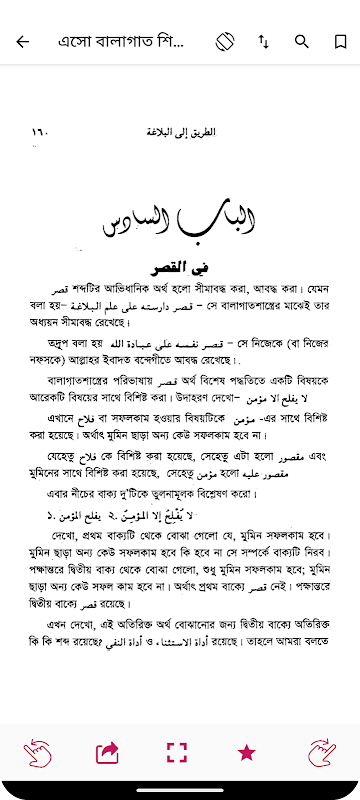 এসো বালাগাত শি...
١٦٠ الطريق إلى البلاغة
الباب السادس
في القصر
قصر শব্দটির আভিধানিক অর্থ হলো সীমাবদ্ধ করা, আবদ্ধ করা। যেমন
বলা হয়– قـصـر دارستـه على علم البـلاغـة – সে বালাগাতশাস্ত্রের মাঝেই তার
অধ্যয়ন সীমাবদ্ধ রেখেছে।
তদ্রূপ বলা হয় قـصـر نفـسـه على عبـادة الله – সে নিজেকে (বা নিজের
নফসকে) আল্লাহর ইবাদত বন্দেগীতে আবদ্ধ রেখেছে।
বালাগাতশাস্ত্রের পরিভাষায় قصر অর্থ বিশেষ পদ্ধতিতে একটি বিষয়কে
আরেকটি বিষয়ের সাথে বিশিষ্ট করা। উদাহরণ দেখো– لا يفلح الا مؤمن
এখানে فلاح বা সফলকাম হওয়ার বিষয়টিকে مؤمن -এর সাথে বিশিষ্ট
করা হয়েছে। অর্থাৎ মুমিন ছাড়া অন্য কেউ সফলকাম হবে না।
যেহেতু فلاح কে বিশিষ্ট করা হয়েছে, সেহেতু এটা হলো مقصور এবং
মুমিনের সাথে বিশিষ্ট করা হয়েছে, সেহেতু مؤمن হলো مقصور عليه
এবার নীচের বাক্য দু'টিকে তুলনামূলক বিশ্লেষণ করো।
١. يفلح المؤمن ٢. لا يُفْلِحُ إلا المؤمِنُ
দেখো, প্রথম বাক্যটি থেকে বোঝা গেলো যে, মুমিন সফলকাম হবে।
মুমিন ছাড়া অন্য কেউ সফলকাম হবে কি হবে না সে সম্পর্কে বাক্যটি নিরব।
পক্ষান্তরে দ্বিতীয় বাক্য থেকে বোঝা গেলো, শুধু মুমিন সফলকাম হবে; মুমিন
ছাড়া অন্য কেউ সফল কাম হবে না। অর্থাৎ প্রথম বাক্যে قصر নেই। পক্ষান্তরে
দ্বিতীয় বাক্যে قصر রয়েছে।
এখন দেখো, এই অতিরিক্ত অর্থ বোঝানোর জন্য দ্বিতীয় বাক্যে অতিরিক্ত
কি কি শব্দ রয়েছে? أداة النفي ও أداة الاستثناء রয়েছে। তাহলে আমরা বলতে